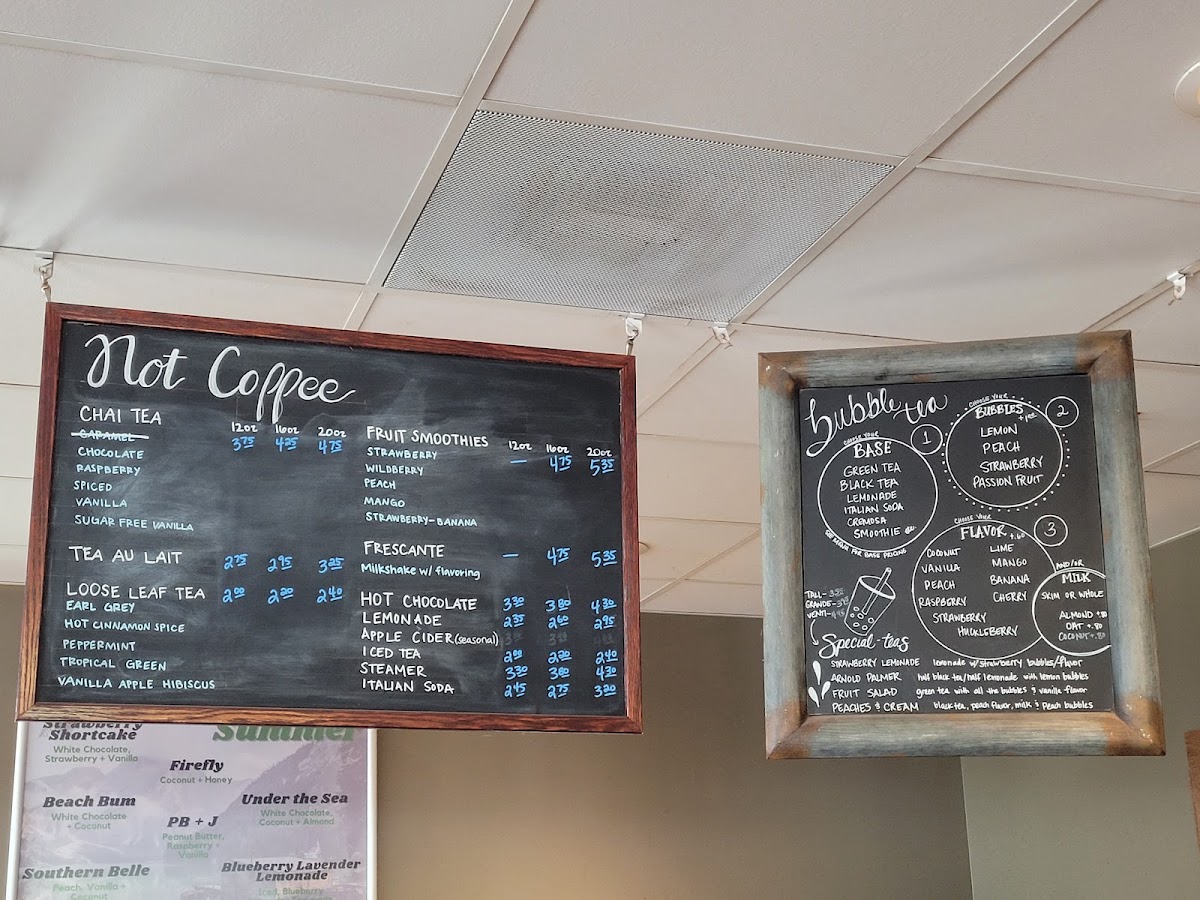 Not Coffee
CHAI TEA 12oz 16oz 20oz
CARAMEL 3.75 4.25 4.75
CHOCOLATE
RASPBERRY
SPICED
VANILLA
SUGAR FREE VANILLA
TEA AU LAIT 2.75 2.95 3.25
LOOSE LEAF TEA 2.00 2.20 2.40
EARL GREY
HOT CINNAMON SPICE
PEPPERMINT
TROPICAL GREEN
VANILLA APPLE HIBISCUS
FRUIT SMOOTHIES 12oz 16oz 20oz
STRAWBERRY — 4.75 5.35
WILDBERRY
PEACH
MANGO
STRAWBERRY-BANANA
FRESCANTE — 4.75 5.35
Milkshake w/ flavoring
HOT CHOCOLATE 3.30 3.80 4.30
LEMONADE 2.35 2.60 2.95
APPLE CIDER (seasonal)
ICED TEA 2.00 2.20 2.40
STEAMER 3.30 3.80 4.30
ITALIAN SODA 2.45 2.75 3.20
bubble tea
CHOOSE YOUR
BASE
1
GREEN TEA
BLACK TEA
LEMONADE
ITALIAN SODA
CREMOSA
SMOOTHIE
SEE MENUS FOR BASE PRICING
CHOOSE YOUR
BUBBLES
2
LEMON
PEACH
STRAWBERRY
PASSION FRUIT
CHOOSE YOUR
FLAVOR +.60
3
COCONUT LIME
VANILLA MANGO
PEACH BANANA
RASPBERRY CHERRY
STRAWBERRY
HUCKLEBERRY
AND/OR
MILK
SKIM OR WHOLE
ALMOND +.80
OAT +.80
COCONUT +.80
TALL-
GRANDE-
VENTI-
Special-teas
STRAWBERRY LEMONADE lemonade w/strawberry bubbles/flavor
ARNOLD PALMER half black tea/half lemonade with lemon bubbles
FRUIT SALAD green tea with all the bubbles & vanilla flavor
PEACHES & CREAM black tea, peach flavor, milk & peach bubbles
Strawberry
Shortcake
White Chocolate,
Strawberry + Vanilla
Summer
Firefly
Coconut + Honey
Beach Bum
White Chocolate
+ Coconut
Under the Sea
White Chocolate,
Coconut + Almond
PB + J
Peanut Butter,
Raspberry +
Vanilla
Southern Belle
Peach, Vanilla +
Coconut
Blueberry Lavender
Lemonade
Iced, Blueberry